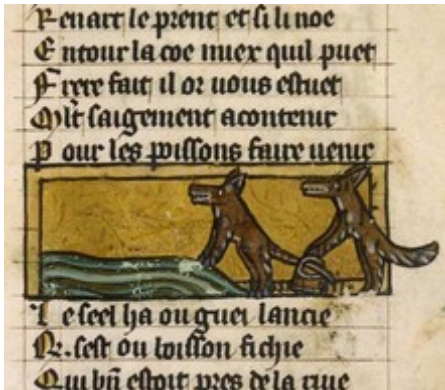 Renart le prent et si li noe
Entour la coe miex quil puet
Frere fait il or uous estuet
Mlt saigement acontenir
Pour les poissons faire uenir
Le seel ha ou guei lancie
R. sest ou buisson fichie
Qui bn estoit pres de la riue